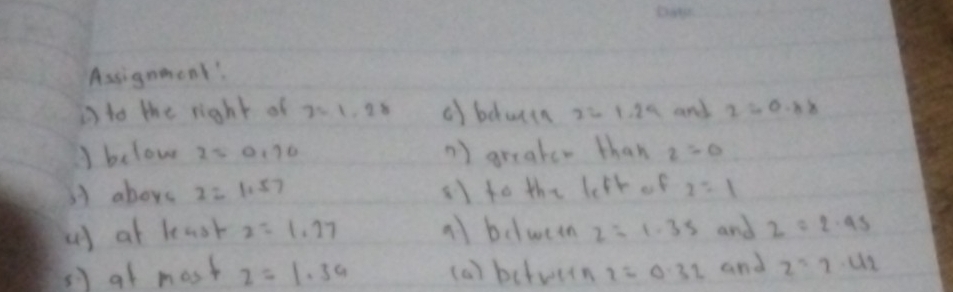 Date:
Assignment:
1) to the right of z=1.28
2) below z=0.70
3) above z=1.57
4) at least z=1.97
5) at most z=1.39
6) between z=1.29 and z=0.88
7) greater than z=0
8) to the left of z=1
9) between z=1.35 and z=2.95
10) between z=0.32 and z=2.42